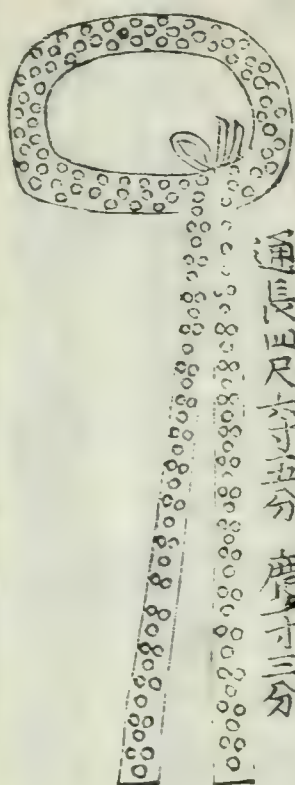 通長三尺六寸五分 廣一寸三分